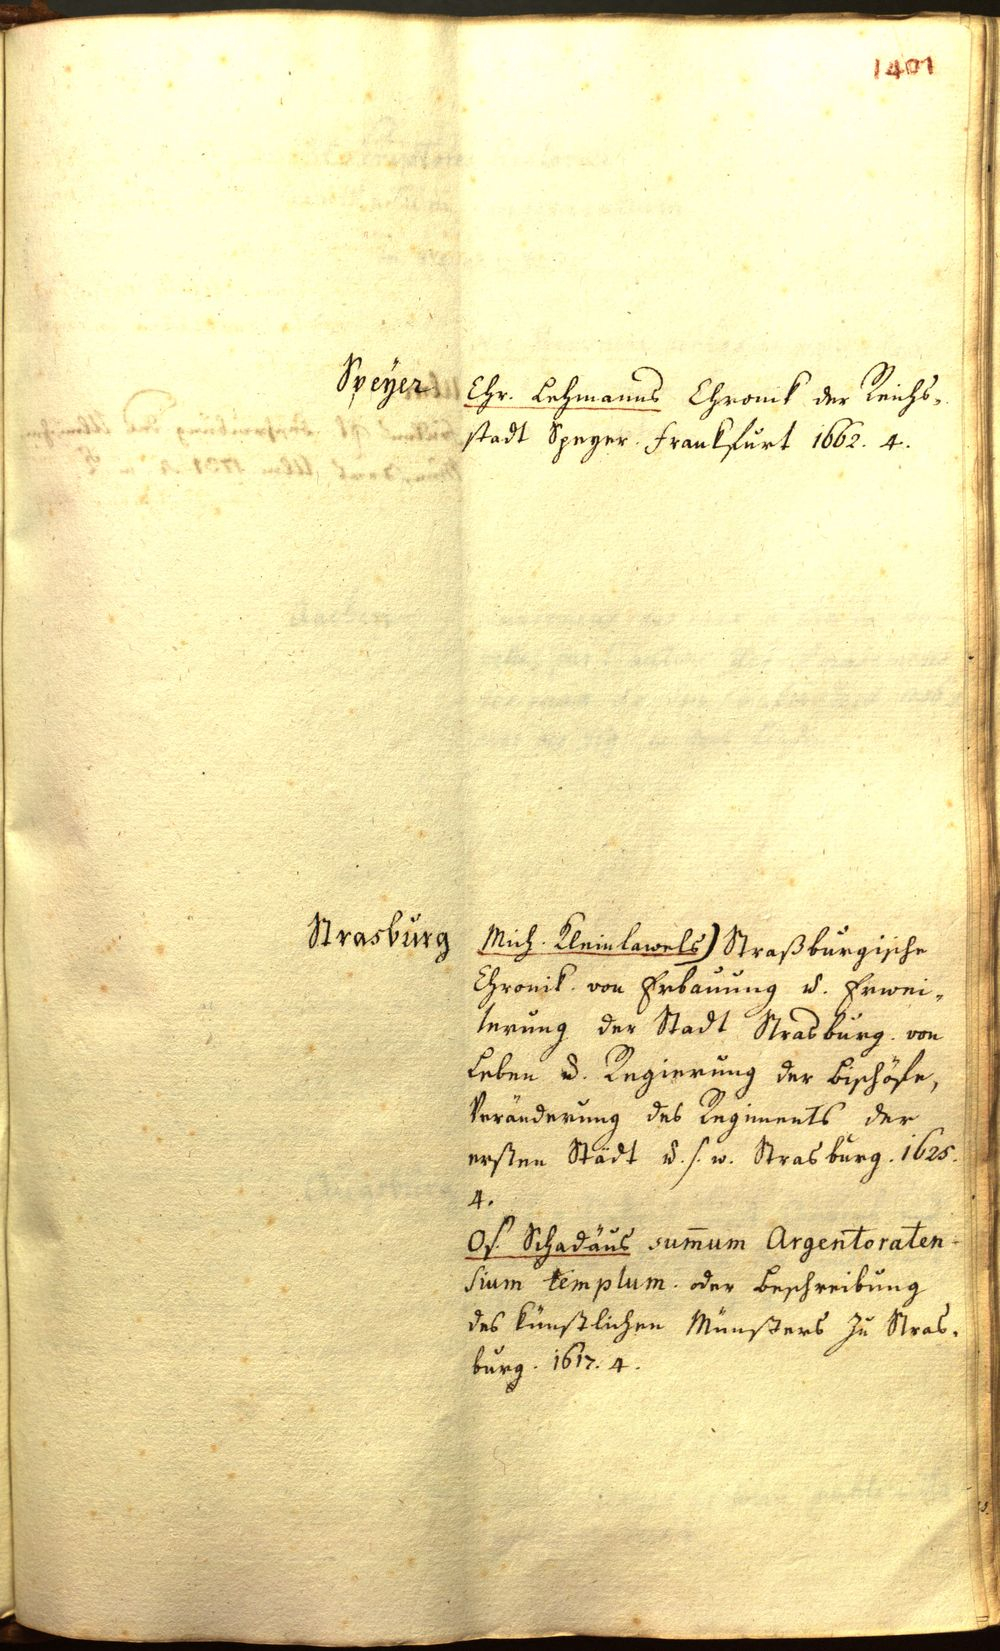 1401
Speÿer
Chr. Lehmanns Chronik der Reichs-
stadt Speyer. Frankfurt 1662. 4.
Strasburg
Mich. Kleinlawels) Straßburgische
Chronik. von Erbauung u. Erwei-
terung der Stadt Strasburg. von
Leben u. Regierung der Bischöfe,
Veränderung des Regiments der
ersten Städt u. s. w. Strasburg. 1625.
4.
Os. Schadäus sum̄um Argentoraten-
sium templum. oder Beschreibung
des künstlichen Münsters zu Stras-
burg. 1617. 4.